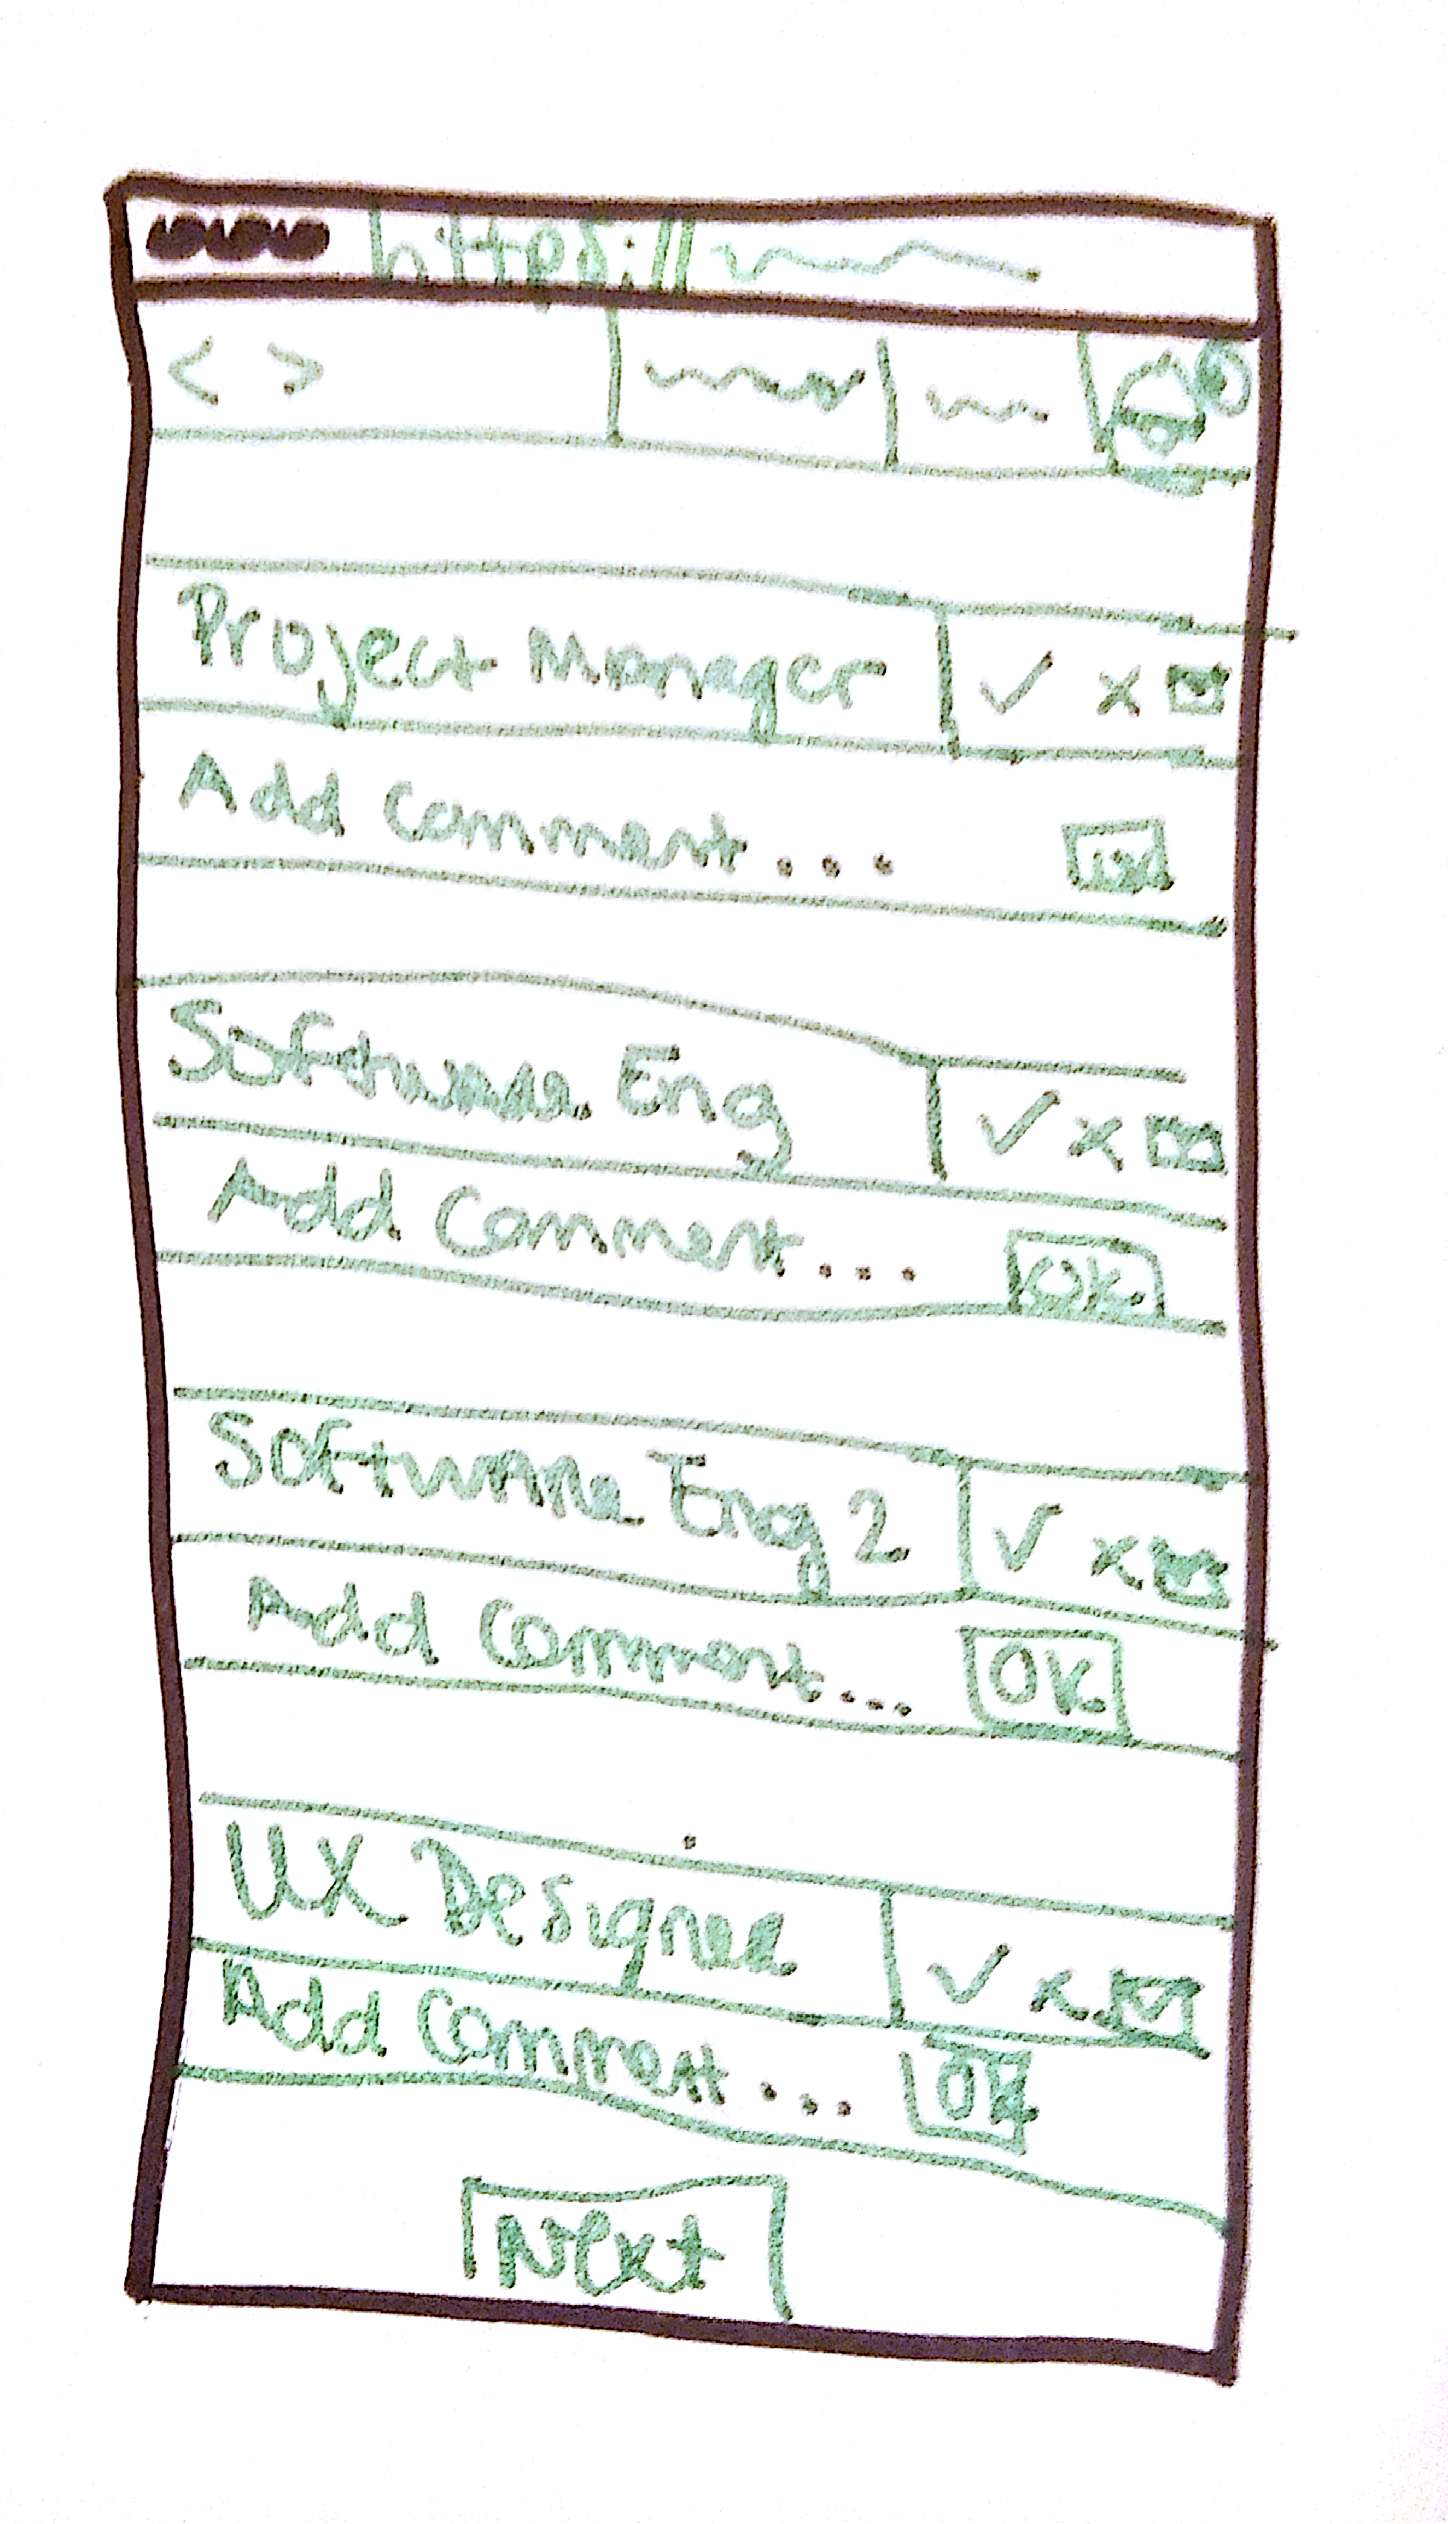 https://
< >
Project Manager ✓ x
Add Comment... OK
Software Eng ✓ x
Add Comment... OK
Software Eng 2 ✓ x
Add Comment... OK
UX Designer ✓ x
Add Comment... OK
Next